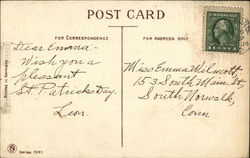 POST CARD
FOR CORRESPONDENCE
FOR ADDRESS ONLY
Dear Emma-
Wish you a
pleasant
St. Patricks Day.
Leon
Miss Emma Wilmott
153 South Main St,
South Norwalk,
Conn
Printed in Germany
Series 7041